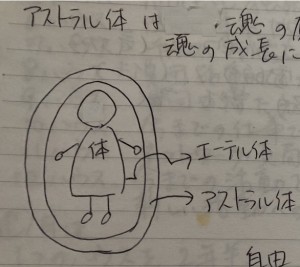 アストラル体は ・魂の
魂の成長に
体
エーテル体
アストラル体
自由